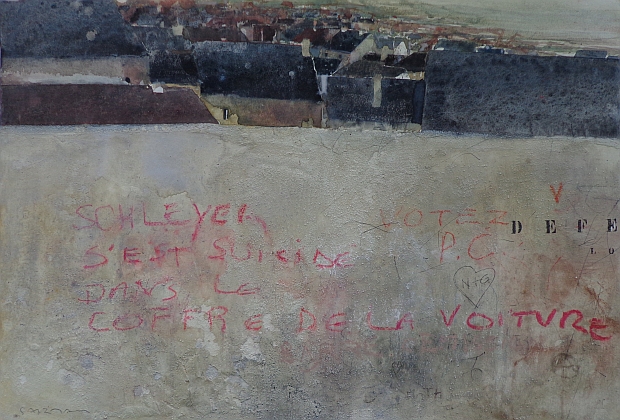 SCHLEYER
S'EST SUICIDE
DANS LE
COFFRE DE LA VOITURE
VOTEZ
P.C.
DEFE
LO
N+G